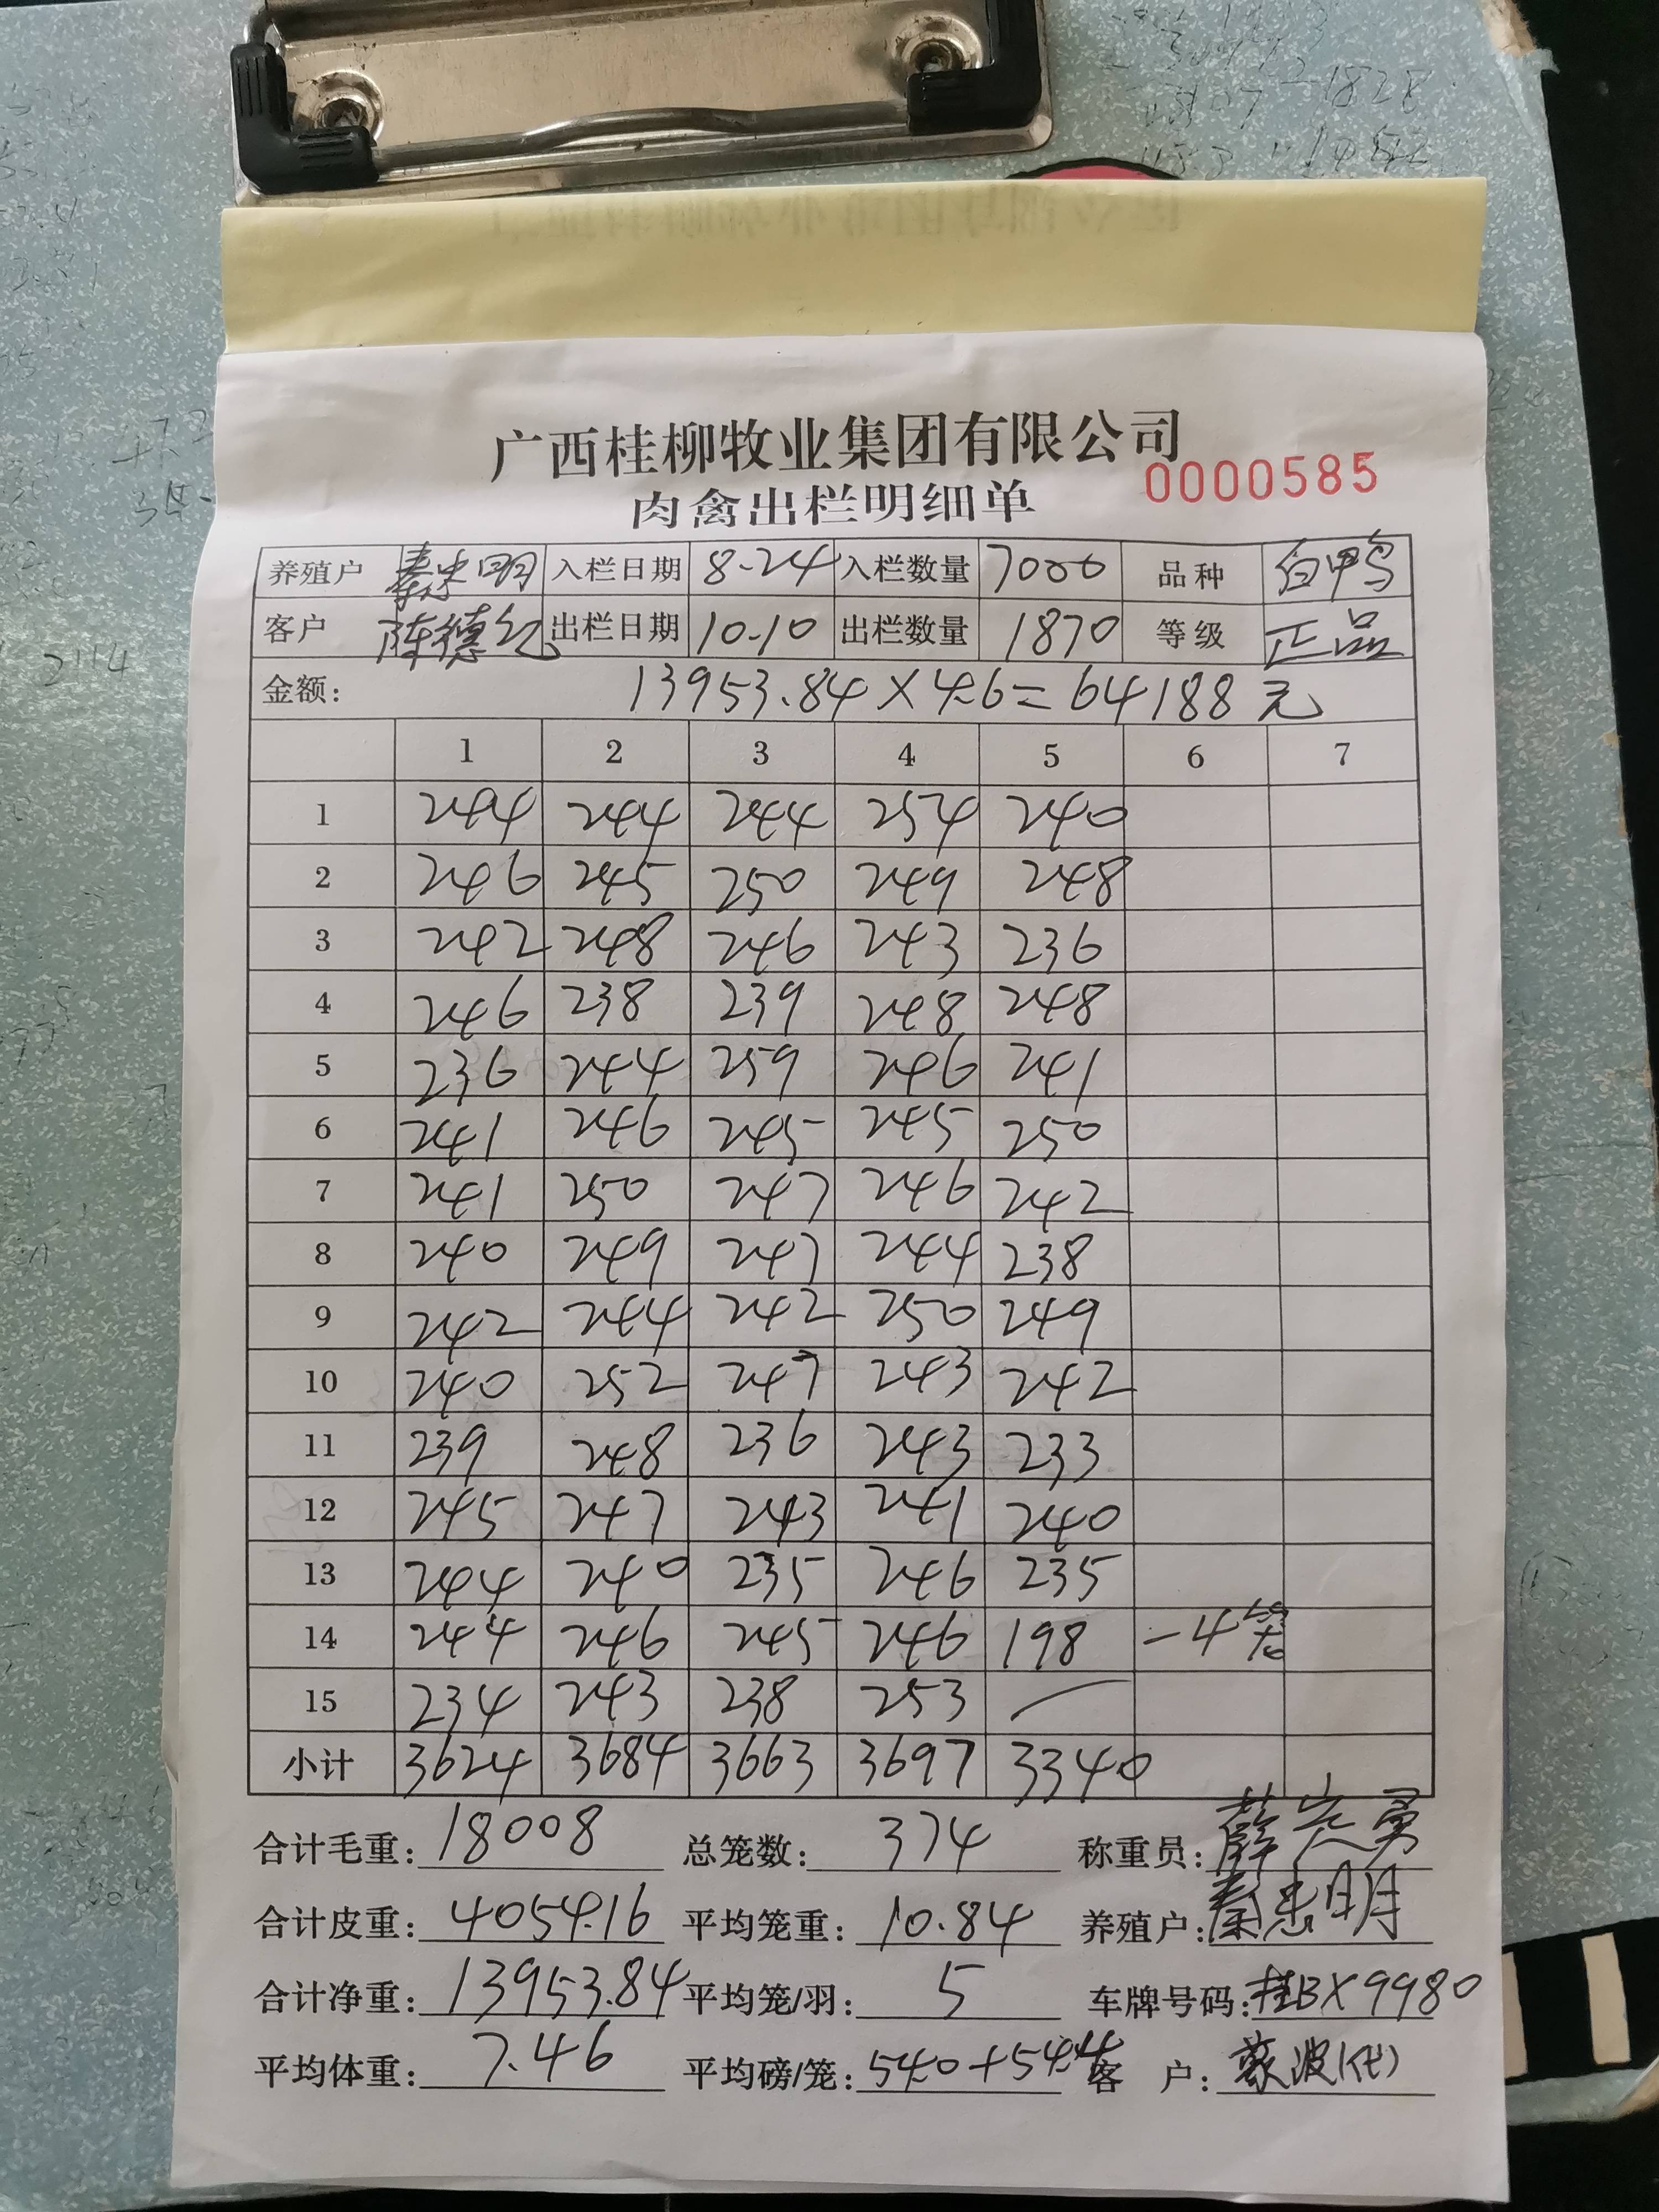 广西桂柳牧业集团有限公司
肉禽出栏明细单 0000585
养殖户 秦忠明 入栏日期 8-24 入栏数量 7000 品种 白甲鸟
客户 陈德 出栏日期 10-10 出栏数量 1870 等级 正品
金额: 13953.84×4.6=64188元
1 2 3 4 5 6 7
1 244 244 244 254 240
2 246 245 250 249 248
3 242 248 246 243 236
4 246 238 239 248 248
5 236 244 259 246 241
6 241 246 245 245 250
7 241 250 247 246 242
8 240 249 247 244 238
9 242 244 242 250 249
10 240 252 247 243 242
11 239 248 236 243 233
12 245 247 243 241 240
13 244 240 235 246 235
14 244 246 245 246 198 -4笼
15 234 243 238 253 —
小计 3624 3684 3663 3697 3340
合计毛重: 18008 总笼数: 374 称重员: 薛宏勇
合计皮重: 4054.16 平均笼重: 10.84 养殖户: 秦忠明
合计净重: 13953.84 平均笼/羽: 5 车牌号码: 桂BX9980
平均体重: 7.46 平均磅/笼: 54.0+54.4 客 户: 蒙波(代)